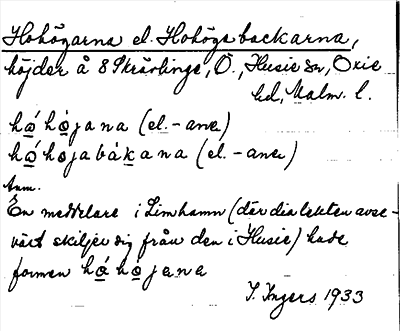 Hohögarna el. Hohögsbackarna,
höjder å 8 Skrävlinge, Ö., Husie sn, Oxie
hd, Malm. l.
hó̲hò̲jana (el. -ane)
hó̲hojabák̲ana (el. -ane)
Anm.
En meddelare i Limhamn (där dialekten avse-
värt skiljer sig från den i Husie) hade
formen hó̲hò̲jana
I. Ingers 1933